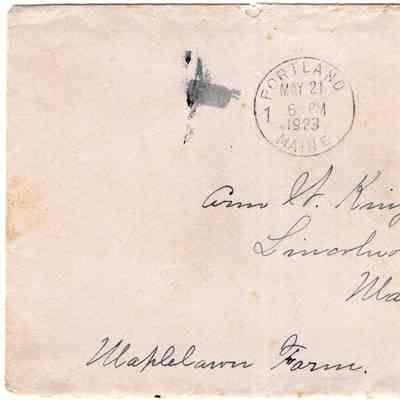 PORTLAND
MAY 21
1 6 PM
1923
MAINE
Lincolnv
Ma
Maplelawn Farm.